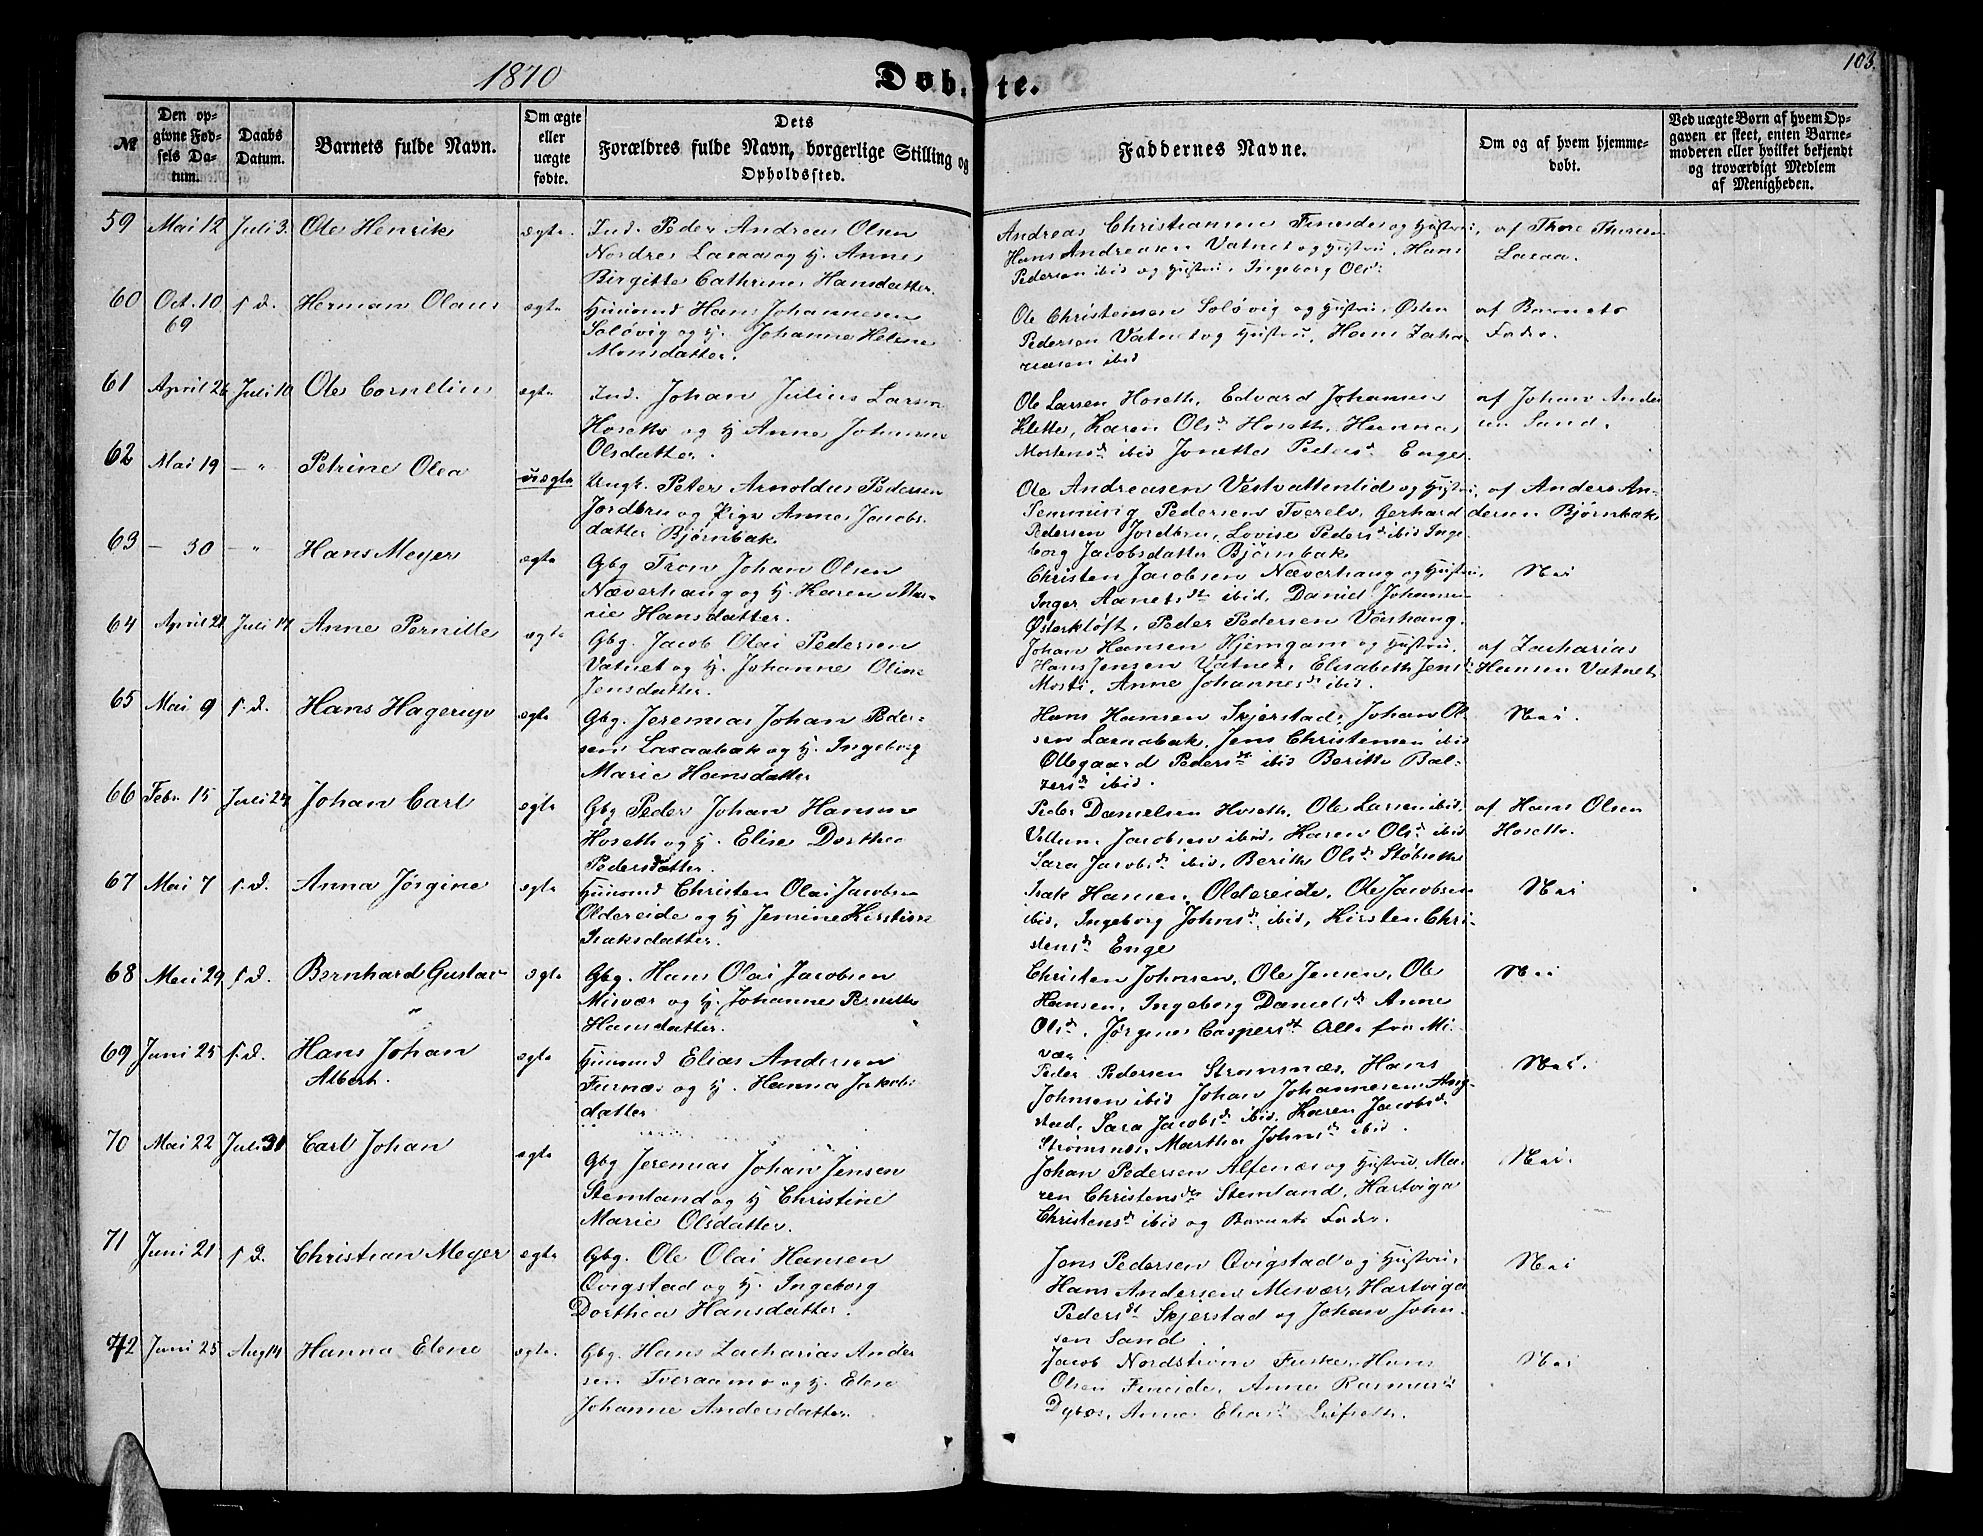 1870
Døbte.
103.
№
Den opgivne Fødsels Datum.
Daabs Datum.
Barnets fulde Navn.
Om ægte eller uægte fødte.
Dets Forældres fulde Navn, borgerlige Stilling og Opholdssted.
Faddernes Navne.
Om og af hvem hjemmedøbt.
Ved uægte Børn af hvem Opgaven er skeet, enten Barnemoderen eller hvilket bekjendt og troværdigt Medlem af Menigheden.
59 Mai 12 Juli 3. Ole Henrik ægte.
Ind. Peder Andreas Olsen
Nordre Laxaa og H. Anne
Birgitte Cathrine Hansdatter.
Andreas Christiansen og Hustru,
Hans Andreasen Vatnet og Hustru, Hans
Pedersen ibid og Hustru, Ingeborg Olsd.
af Thore Thoresen
Laxaa.
60 Oct. 10 69 s. d. Herman Olaus ægte
Huusmd Hans Johannesen
Soløvig og H. Johanne Helene
Monsdatter.
Ole Christensen Soløvig og Hustru, Østen
Pedersen Vatnet og Hustru, Hans Zaha-
riasen ibid
af Barnets
Fader.
61 April 26 Juli 10 Ole Cornelius ægte
Ind. Johan Julius Larsen
Hoseth og H. Anne Johanne
Olsdatter.
Ole Larsen Hoseth, Edvard Johansen
Klette, Karen Olsd. Hoseth, Hanna
Mortensd. ibid Jonetta Pedersd. Enge.
af Johan Ander
sen Sand.
62 Mai 19 — " Petrine Olea uægte
Ungk. Peter Arnoldus Pedersen
Jordbru og Pige Anne Jacobs-
datter Bjørnbak
Ole Andreasen Vestvattenlid og Hustru,
Pedersen Tverelv, Gerhard
Pedersen Jordbru, Lovise Pedersd. ibid Inge-
borg Jacobsdatter Bjørnbak
af Anders An-
dersen Bjørnbak
63 — 30 — " Hans Meyer ægte
Gbg Tron Johan Olsen
Næverhaug og H. Karen Ma-
rie Hansdatter.
Christen Jacobsen Næverhaug og Hustru,
Inger Aanetsdt ibid, Daniel Johansen
Østerkløft, Peder Pedersen Vaeshaug.
Nei
64 April 21 Juli 17 Anne Pernille ægte
Gbg. Jacob Olai Pedersen
Vatnet og H. Johanne Oline
Jensdatter.
Johan Hansen Hjemgam og Hustru,
Hans Jensen Vatnet, Elisabeth Jensd.
Mosti, Anne Johannesd. ibid.
af Zacharias
Hansen Vatnet
65 Mai 9 s. d. Hans Hagerup ægte
Gbg. Jeremias Johan Peder-
sen Laxaabak og H. Ingeborg
Marie Hansdatter
Hans Hansen Skjerstad, Johan Ol-
sen Laxabak, Jens Christensen ibid
Ollegaard Pedersdt ibid Berith Bal-
zersd. ibid.
Nei.
66 Febr. 15 Juli 24 Johan Carl ægte
Gbg Peder Johan Hansen
Hoseth og H. Elise Dorthea
Pedersdatter.
Peder Danielsen Hoseth, Ole Larsen ibid.
Villum Jacobsen ibid, Karen Olsd. ibid
Sara Jacobsd. ibid, Berith Olsd.
af Hans Olsen
Hoseth.
67 Mai 7 s. d. Anna Jørgine ægte
Huusmd Christen Olai Jacobsen
Oldereide og H Jemine Kirstine
Isaksdatter.
Isak Hansen Oldereide, Ole Jacobsen
ibid, Ingeborg Johnsd. ibid, Kirsten Chri-
stensd. Enge
Nei
68 Mai 29 s. d. Bernhard Gustav ægte
Gbg. Hans Olai Jacobsen
Misvær og H. Johanne Pernille
Hansdatter.
Christen Johnsen, Ole Jensen, Ole
Hansen, Ingeborg Danielsd. Anne
Olsd., Jørgine Caspersdt Alle fra Mi-
vær.
Nei
69 Juni 25 s. d. Hans Johan
Albert. ægte
Huusmd Elias Andersen
Furnæs og H. Hanna Jakobs
datter
Peder Pedersen Strømsnæs, Hans
Johnsen ibid Johan Johannesen Aug-
stad, Sara Jacobsd. ibid, Karen Jacobsd.
Strømsnæs, Martha Johnsd. ibid.
Nei.
70 Mai 22 Juli 31 Carl Johan ægte
Gbg Jeremias Johan Jensen
Stemland og H Christine
Marie Olsdatter.
Johan Pedersen Alfenæs og Hustru, Ma-
ren Christensdtr Stemland, Hartviga
Christensd. ibid og Barnets Fader.
Nei.
71 Juni 21 s. d. Christian Meyer ægte
Gbg. Ole Olai Hansen
Qvigstad og H. Ingeborg
Dorthea Hansdatter.
Jens Pedersen Qvigstad og Hustru,
Hans Andersen Misvær, Hartviga
Pedersdt Skjerstad og Johan John-
sen Sand.
Nei
72 Juni 25 Aug 14 Hanna Elene ægte.
Gbg. Hans Zacharias Ander
sen Tveraamo og H. Elen
Johanne Andersdatter.
Jacob Nordstrøm Fuske, Hans
Olsen Fineide, Anne Rasmusd.
Dybos, Anne Eliasd.
Nei